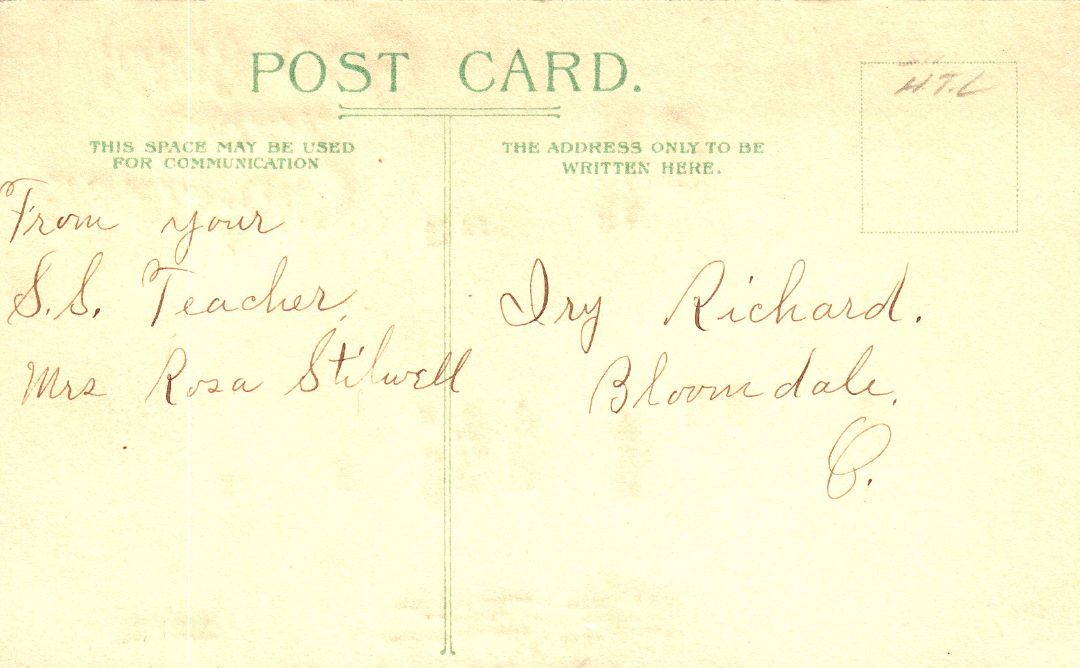 POST CARD.
THIS SPACE MAY BE USED
FOR COMMUNICATION
THE ADDRESS ONLY TO BE
WRITTEN HERE.
H.T.L
From your
S.S. Teacher,
Mrs Rosa Stilwell
Iry Richard.
Bloomdale,
O.